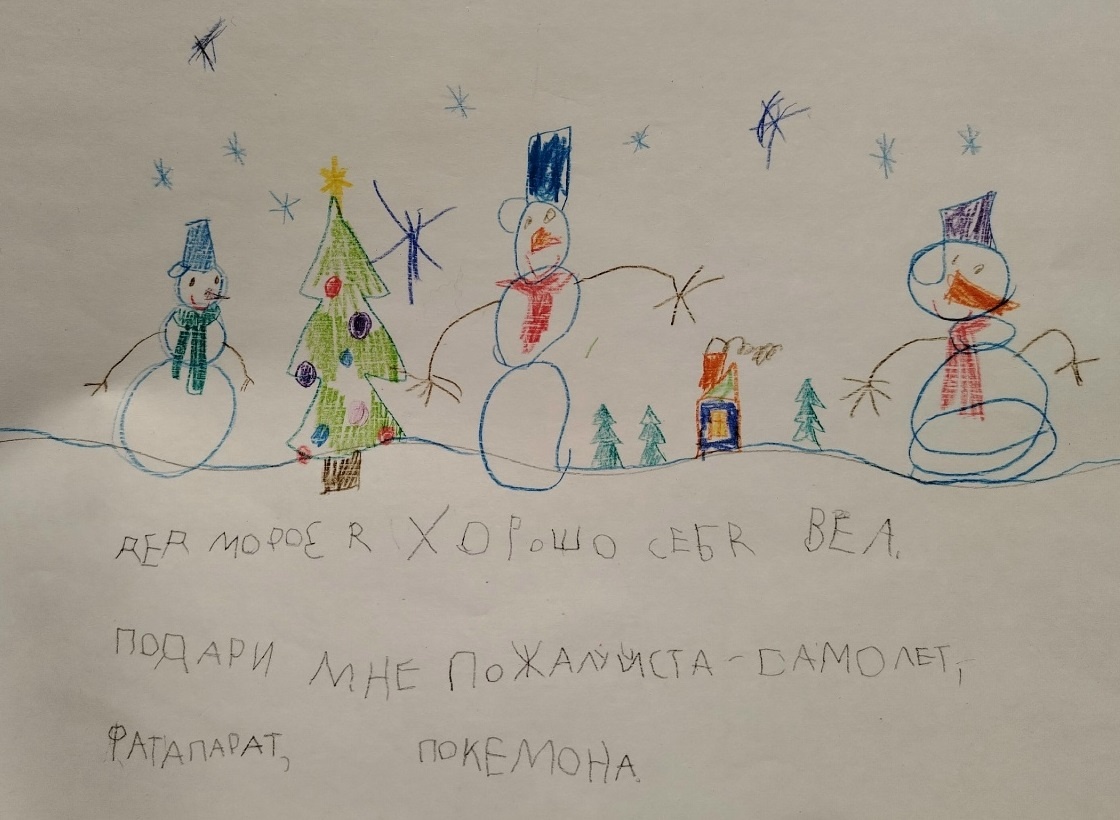 ДЕД МОРОЗ Я ХОРОШО СЕБЯ ВЁЛ.
ПОДАРИ МНЕ ПОЖАЛУЙСТА - САМОЛЕТ,
ФАТАПАРАТ, ПОКЕМОНА.